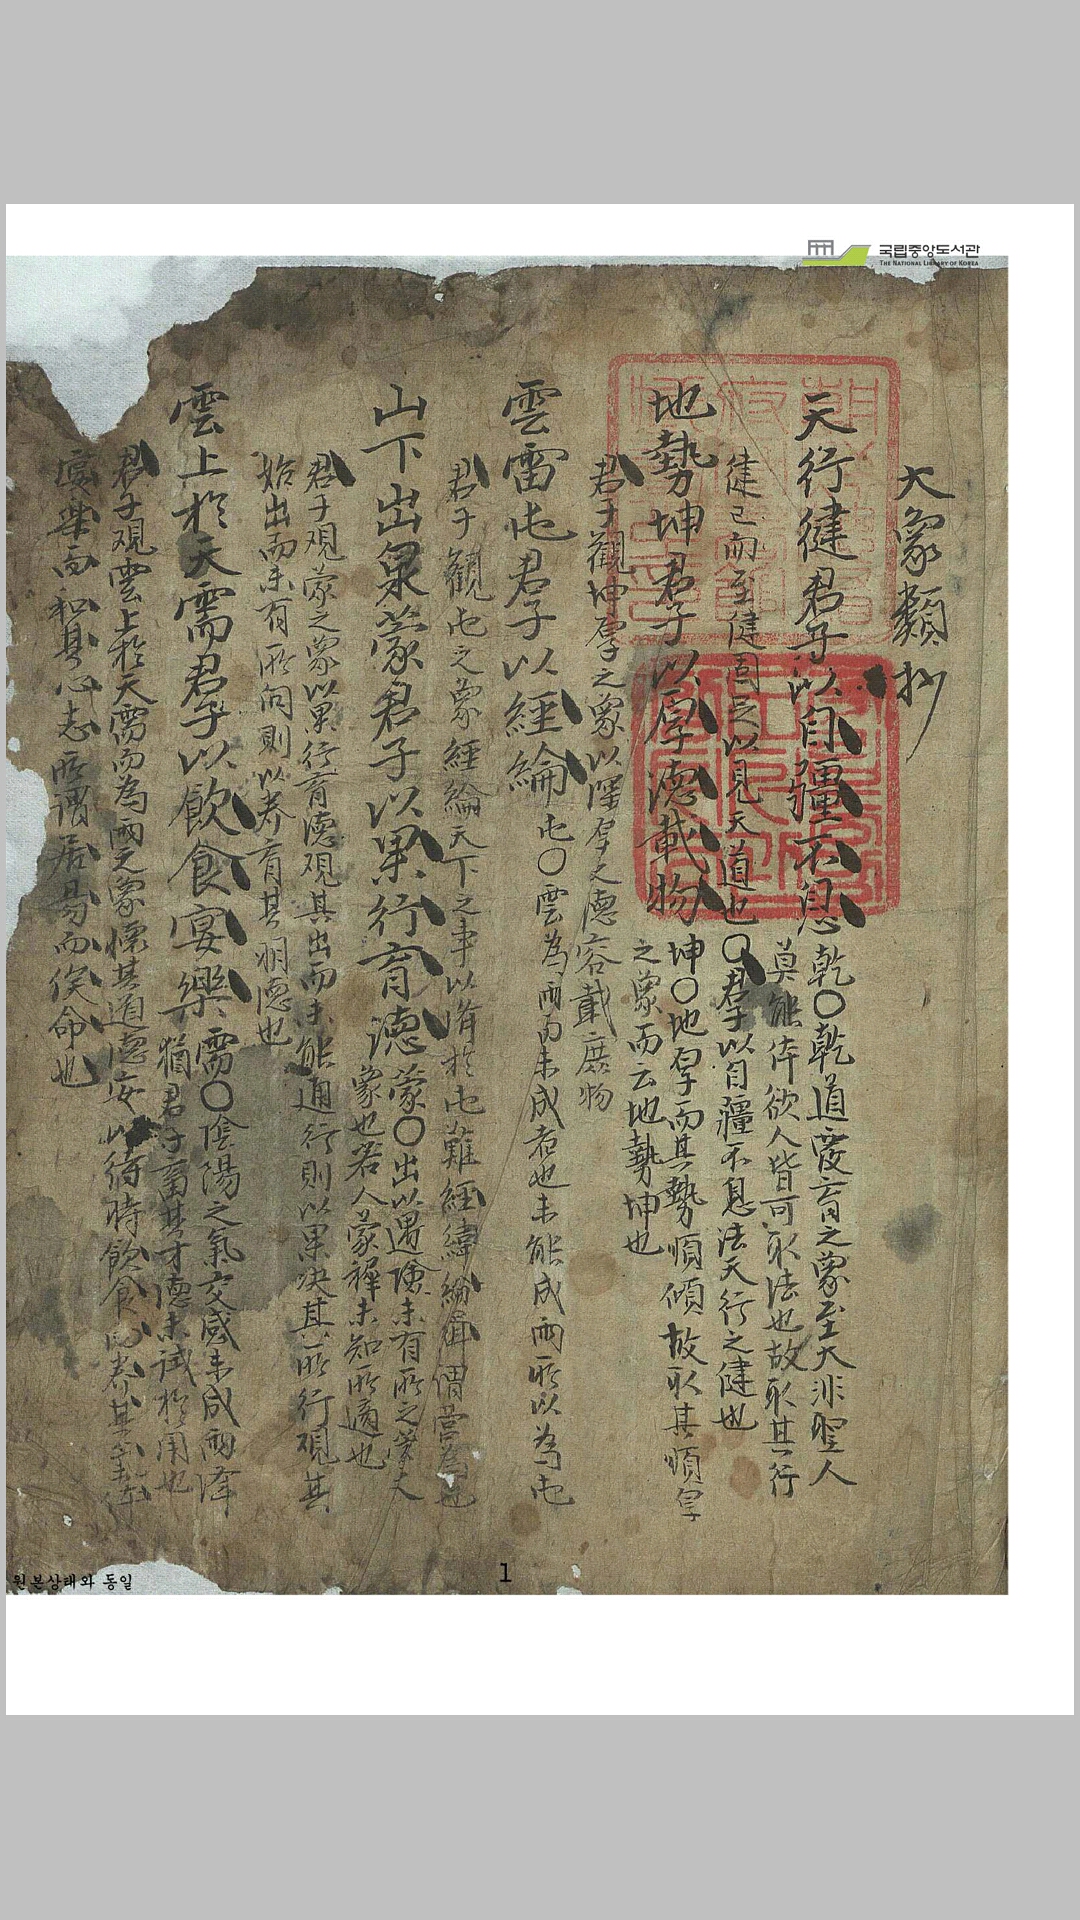 국립중앙도서관
THE NATIONAL LIBRARY OF KOREA
大象類抄
天行健君子以自彊不息
乾○乾道覆育之象至大非聖人
莫能体欲人皆可取法也故取其行
健已而至健固足以見天道也○君子以自彊不息法天行之健也
地勢坤君子以厚德載物
坤○地厚而其勢順傾故取其順厚
之象而云地勢坤也
君子觀坤厚之象以深厚之德容載庶物
雲雷屯君子以經綸
屯○雲為雨而未成者也未能成雨所以為屯
君子觀屯之象經綸天下之事以濟於屯難經緯綸緝謂營為也
山下出泉蒙君子以果行育德
蒙○出以遇險未有所之蒙之
象也若人蒙穉未知所適也
君子观蒙之象以果行育德观其出而未能通行則以果决其所行观其
始出而未有所向則以养育其明德也
雲上於天需君子以飲食宴樂
需○陰陽之氣交感未成雨澤
猶君子畜其才德未試於用也
君子观雲上於天需而為雨之象懷其道德安以待時飲食以养其氣体
宴樂而和其心志所謂居易而俟命也
1
원본상태와 동일